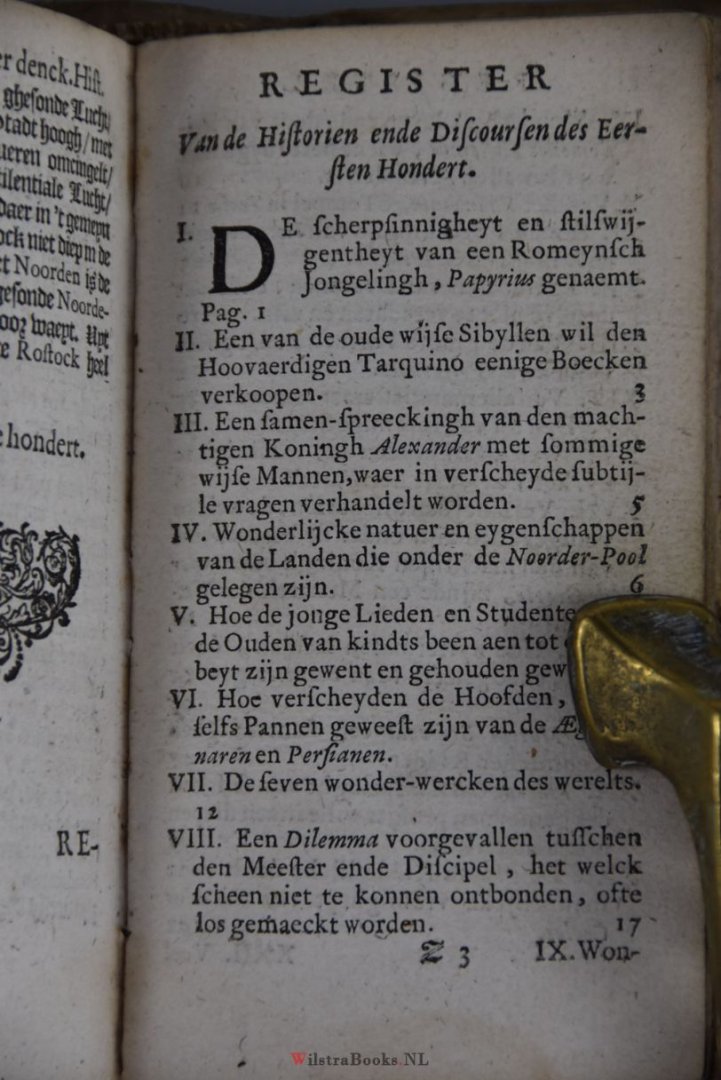 er denck. Hiſt.
gheſonde Lucht/
Stadt hoogh/met
ueren omcingelt/
ilentiale Lucht/
daer in 't gemeyn
ock niet diep in de
et Noorden is de
geſonde Noorde-
oor waeyt. Uyt
e Roſtock heel
e hondert.
RE-
REGISTER
Van de Hiſtorien ende Diſcourſen des Eer-
ſten Hondert.
I. DE ſcherpſinnigheyt en ſtilſwij-
gentheyt van een Romeynſch
Jongelingh, Papyrius genaemt.
Pag. 1
II. Een van de oude wijſe Sibyllen wil den
Hoovaerdigen Tarquino eenige Boecken
verkoopen. 3
III. Een ſamen-ſpreeckingh van den mach-
tigen Koningh Alexander met ſommige
wijſe Mannen, waer in verſcheyde ſubtij-
le vragen verhandelt worden. 5
IV. Wonderlijcke natuer en eygenſchappen
van de Landen die onder de Noorder-Pool
gelegen zijn. 6
V. Hoe de jonge Lieden en Studente
de Ouden van kindts been aen tot
beyt zijn gewent en gehouden gew
VI. Hoe verſcheyden de Hoofden,
ſelfs Pannen geweeſt zijn van de Æg
naren en Perſianen.
VII. De ſeven wonder-wercken des werelts.
12
VIII. Een Dilemma voorgevallen tuſſchen
den Meeſter ende Diſcipel, het welck
ſcheen niet te konnen ontbonden, ofte
los gemaeckt worden. 17
Z 3 IX. Won-
WilstraBooks.NL